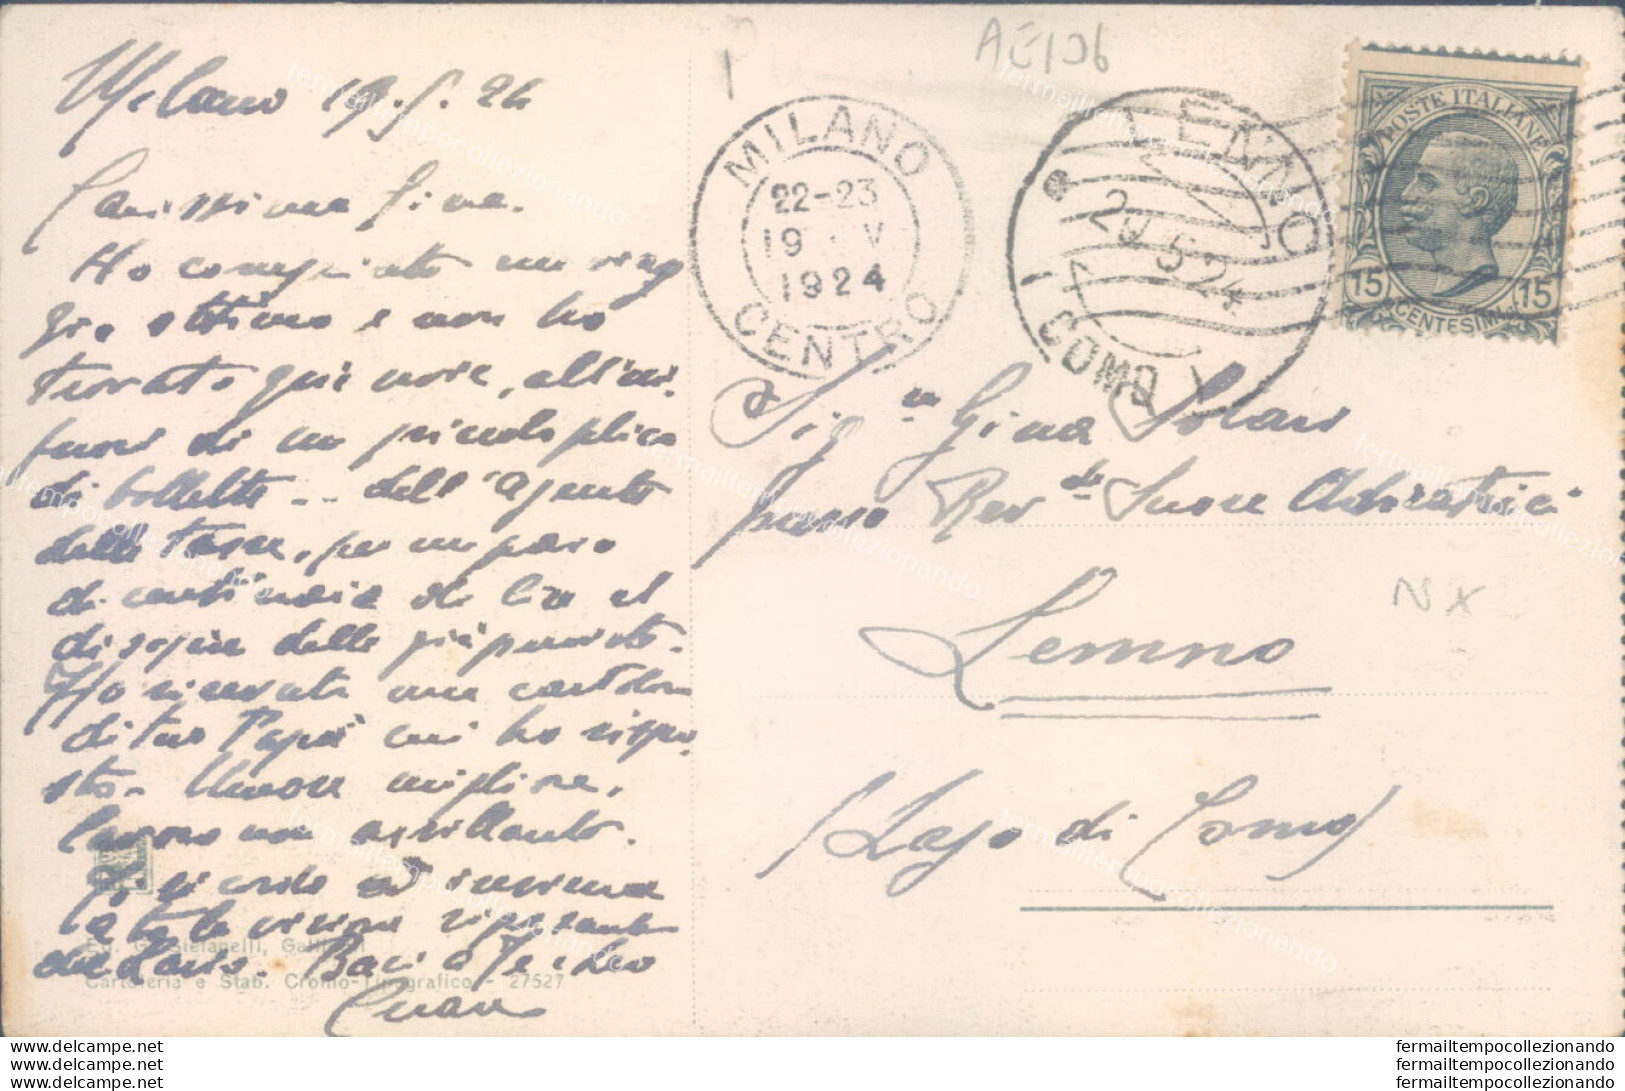 AE106
Milano 19.5.24
Carissima Gina.
Ho compiuto un viag
gio ottimo e non ho
trovato qui noie, all'in
fuori di un piccolo plico
di bollette - dell'Agente
delle tasse, per un paio
di centinaia di lire et
più
Ho ricevuta una cartolina
di tuo Papà cui ho rispo
sto. Umore migliore,
lavoro non assillante.
ricordo
visione riposante
del Lario. Baci a Te e
MILANO
22-23
19 V
1924
CENTRO
LENNO
20.5.24
COMO
POSTE ITALIANE
15 CENTESIMI 15
Sig.na Gina Solari
presso Rev.de Suore Adoratrici
Lenno
(Lago di Como)
NX
Ed. G. Stefanelli,
Cartoleria e Stab. Cromo-Tipografico - 27527
www.delcampe.net
www.delcampe.net
www.delcampe.net
fermailtempocollezionando
fermailtempocollezionando
fermailtempocollezionando